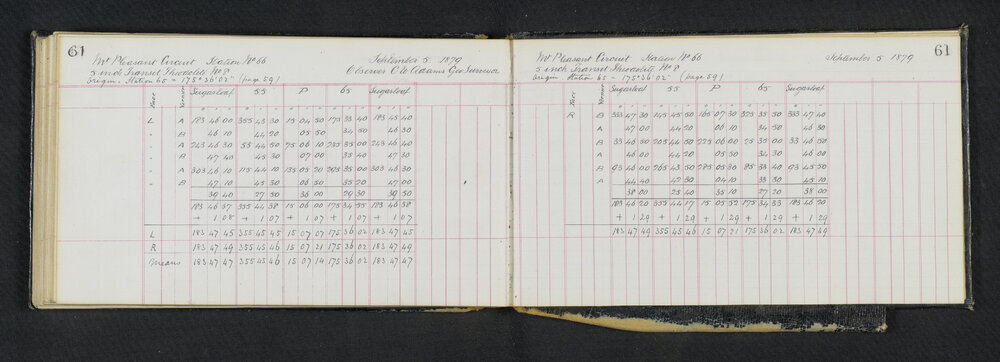 61
Mt Pleasant Circuit Station No 66 September 5 1879
5 inch Transit Theodolite No 8 Observer C W Adams Geo Surveyor
Origin Station 65 = 175° 36' 02" (page 59)
Face Vernier Sugarloaf 55 P 65 Sugarloaf
L A 183 46 00 355 43 30 15 04 50 175 33 40 183 45 40
" B 46 10 44 20 05 50 34 50 46 30
" A 243 46 30 55 44 50 75 06 10 235 35 00 243 46 40
" B 47 40 45 30 07 00 35 40 47 30
" A 303 46 10 115 44 10 135 05 20 295 35 00 303 46 30
" B 47 10 45 30 06 50 35 20 47 00
39 40 27 50 36 00 29 30 39 50
183 46 37 355 44 38 15 06 00 175 34 55 183 46 38
+ 1 08 + 1 07 + 1 07 + 1 07 + 1 07
L 183 47 45 355 45 45 15 07 07 175 36 02 183 47 45
R 183 47 49 355 45 46 15 07 21 175 36 02 183 47 49
Means 183 47 47 355 45 46 15 07 14 175 36 02 183 47 47
61
Mt Pleasant Circuit Station No 66 September 5 1879
5 inch Transit Theodolite No 8
Origin Station 65 = 175° 36' 02" (page 59)
Face Vernier Sugarloaf 55 P 65 Sugarloaf
R B 333 47 30 145 45 50 165 07 30 325 35 50 333 47 40
A 47 00 44 20 06 10 34 50 46 50
B 33 46 50 205 44 50 225 06 00 25 35 00 33 46 50
A 46 00 44 20 05 50 34 30 46 00
B 93 46 00 265 43 50 285 05 30 85 33 40 93 45 50
A 44 40 42 30 04 10 33 30 45 10
38 00 25 40 35 10 27 20 38 00
183 46 20 355 44 17 15 05 52 175 34 33 183 46 20
+ 1 29 + 1 29 + 1 29 + 1 29 + 1 29
183 47 49 355 45 46 15 07 21 175 36 02 183 47 49